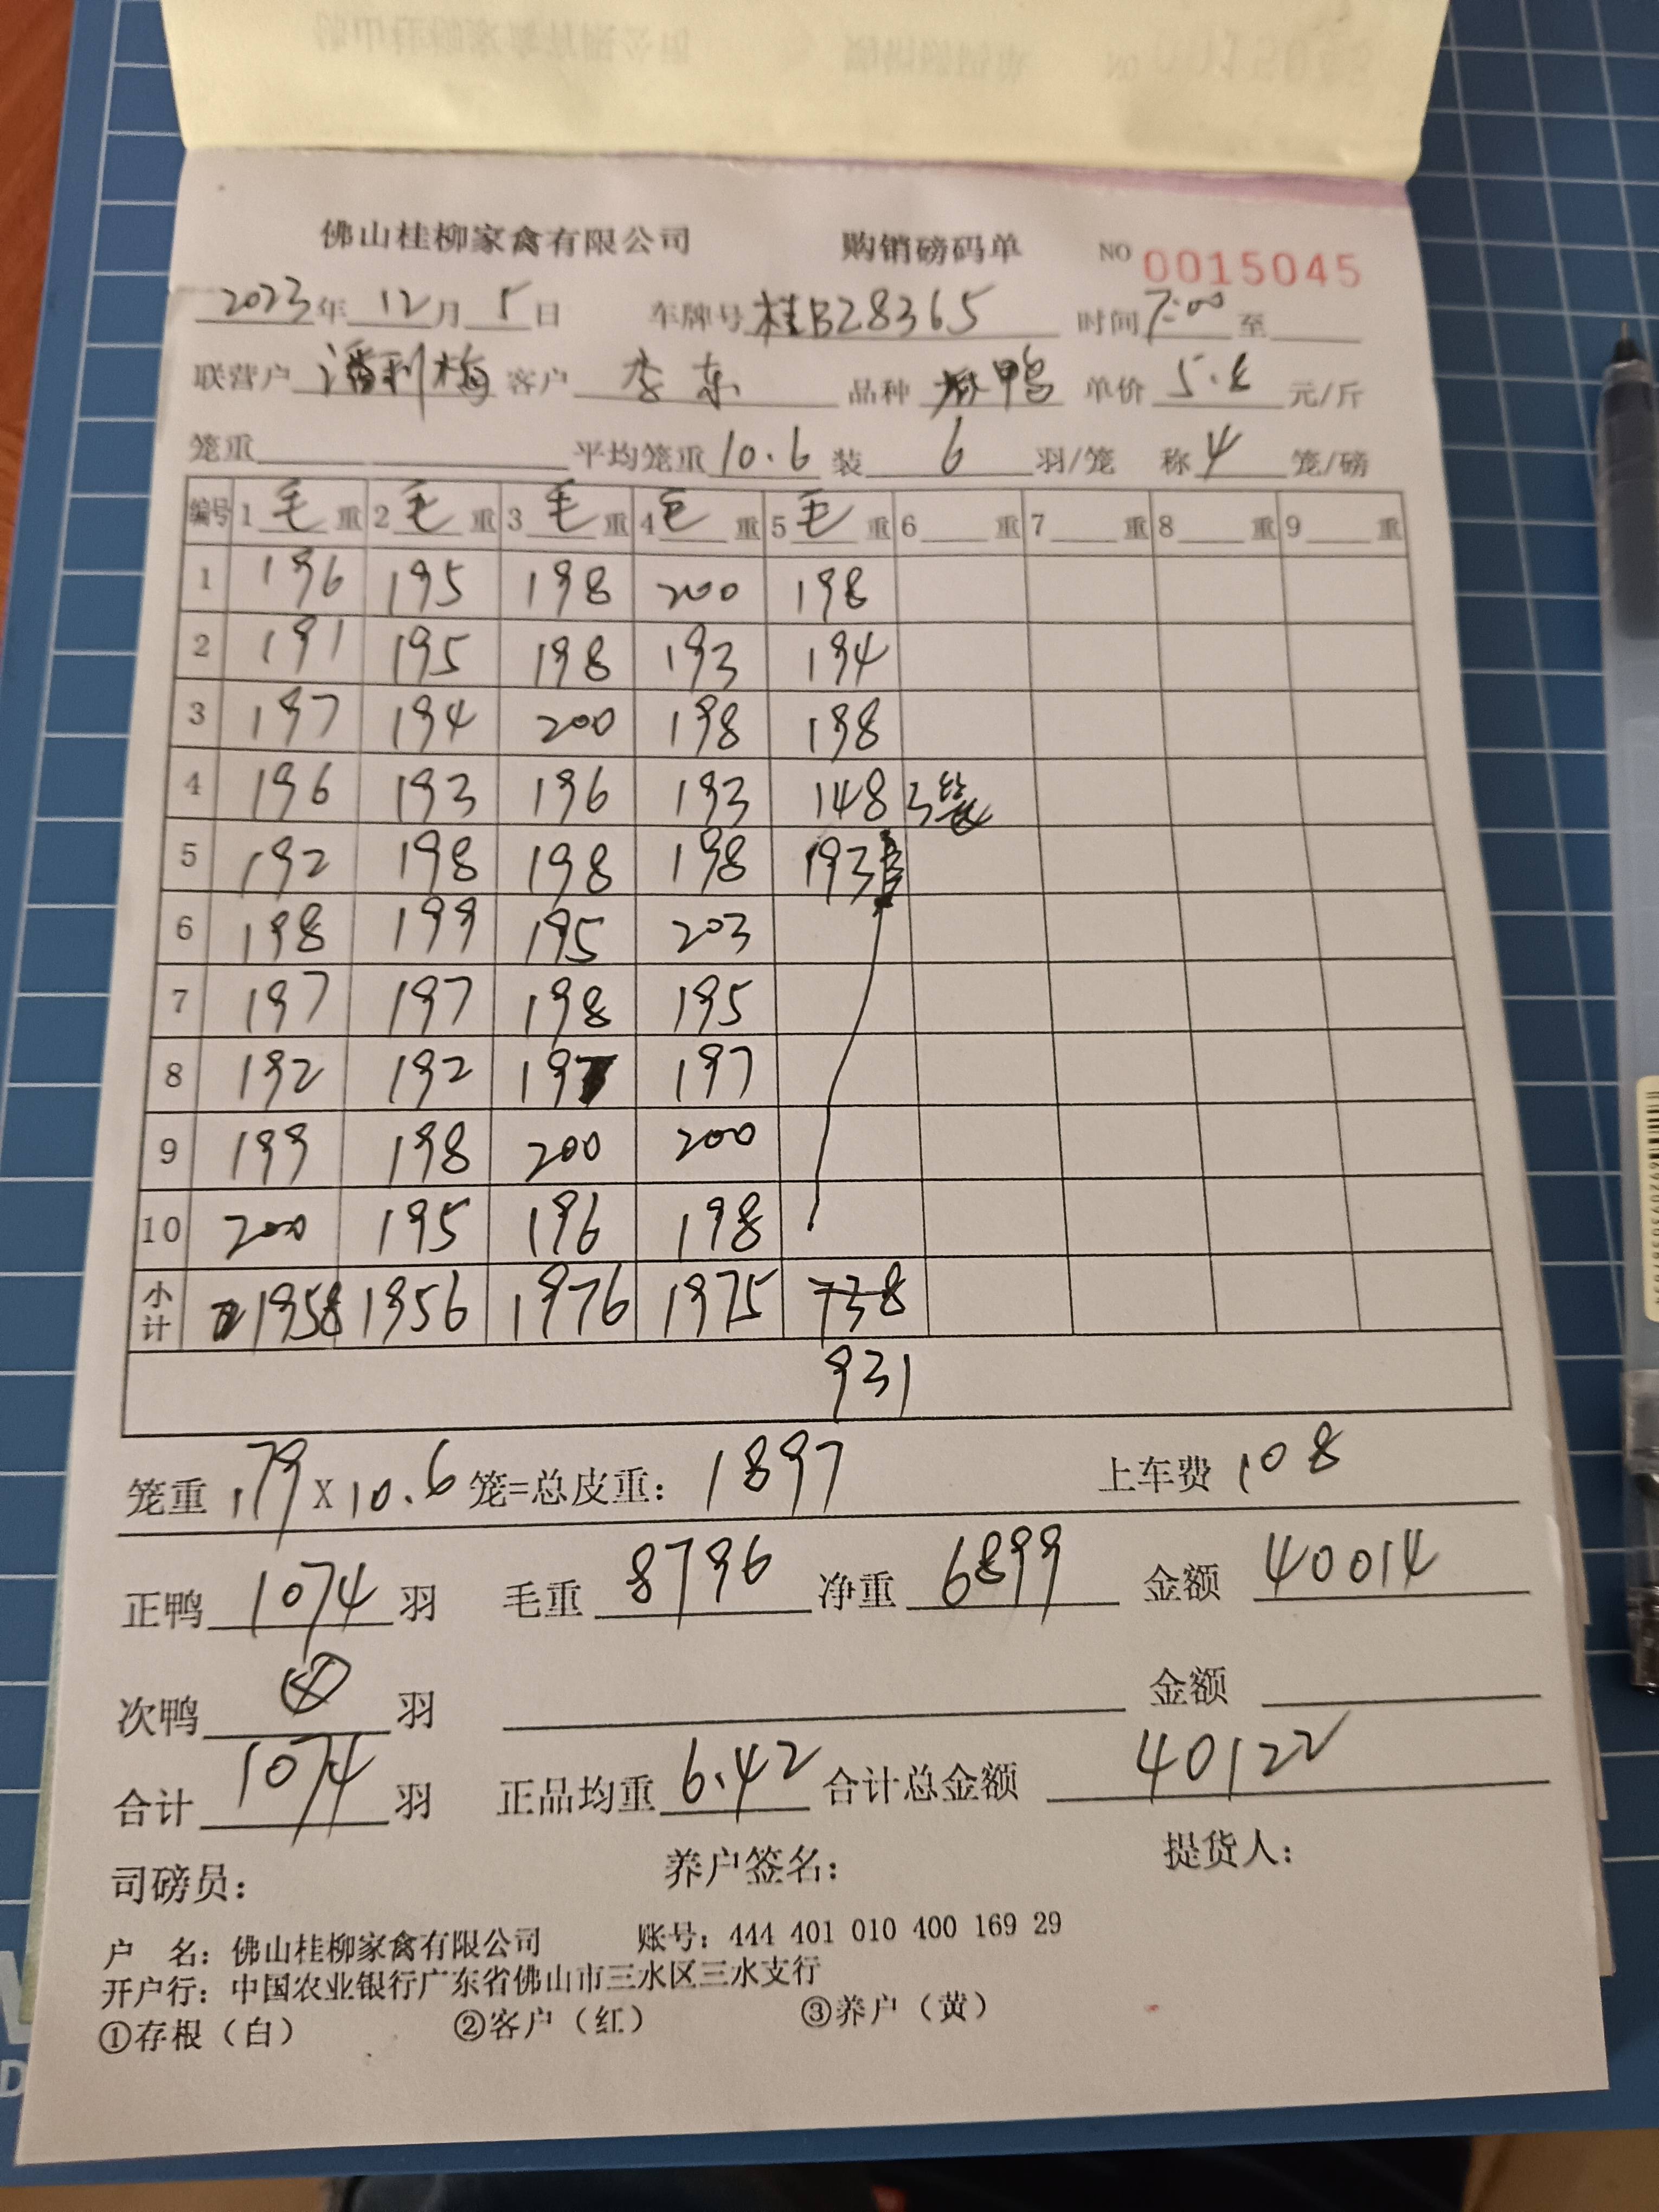 佛山桂柳家禽有限公司 购销磅码单 NO 0015045
2023年12月5日 车牌号桂B28365 时间7:00至
联营户潘利梅 客户李东 品种麻鸭 单价5.8元/斤
笼重 平均笼重10.6 装6羽/笼 称4笼/磅
编号 1毛重 2毛重 3毛重 4毛重 5毛重 6重 7重 8重 9重
1 196 195 198 200 198
2 191 195 198 193 194
3 197 194 200 198 198
4 196 193 196 193 148 3笼
5 192 198 198 198 193
6 198 199 195 203
7 197 197 198 195
8 192 192 197 197
9 199 198 200 200
10 200 195 196 198
小计 1958 1956 1976 1975 738
931
笼重179X10.6笼=总皮重: 1897 上车费108
正鸭1074羽 毛重8796净重6899 金额40014
次鸭 羽 金额
合计1074羽 正品均重6.42合计总金额40122
司磅员: 养户签名: 提货人:
户 名: 佛山桂柳家禽有限公司 账号: 444 401 010 400 169 29
开户行: 中国农业银行广东省佛山市三水区三水支行
①存根(白) ②客户(红) ③养户(黄)